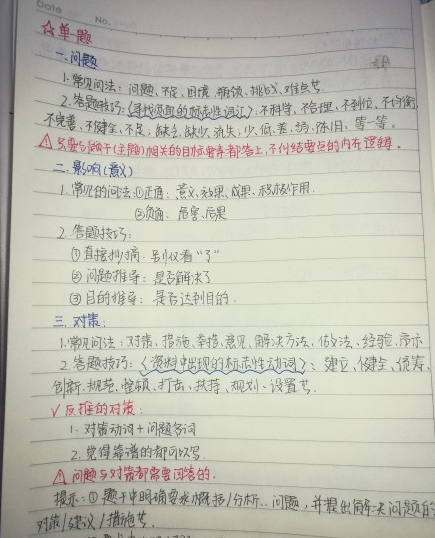 Date No.
☆单题
一.问题
1.常见问法:问题、不足、困境、瓶颈、挑战、难点等.
2.答题技巧:(寻找负面的标志性词汇):不科学、不合理、不到位、不均衡
不完善、不健全、不足、缺乏、缺少、流失、少、低、差、弱、陈旧、单一等。
⚠只要与题干(主题)相关的目标要素都答上,不付结要点的内在逻辑.
二.影响(意义)
1.常见的问法:①正面:意义、效果、成果、积极作用.
②负面:危害、后果
2.答题技巧:
①直接抄摘:别仅看“了”
②问题推导:是否解决了
③目的推导:是否达到目的.
三.对策:
1.常见问法:对策、措施、举措、意见、解决方法、做法、经验、启示
2.答题技巧:(资料中出现的标志性动词):建立、健全、统筹、
创新、规范、整顿、打击、扶持、规划、设置等.
√反推的对策:
1.对策动词+问题名词
2.觉得靠谱的都可以写.
⚠问题与对策都需要回答的.
提示:①题干中明确要求概括/分析..问题,并提出解决问题的
对策/建议/措施等.